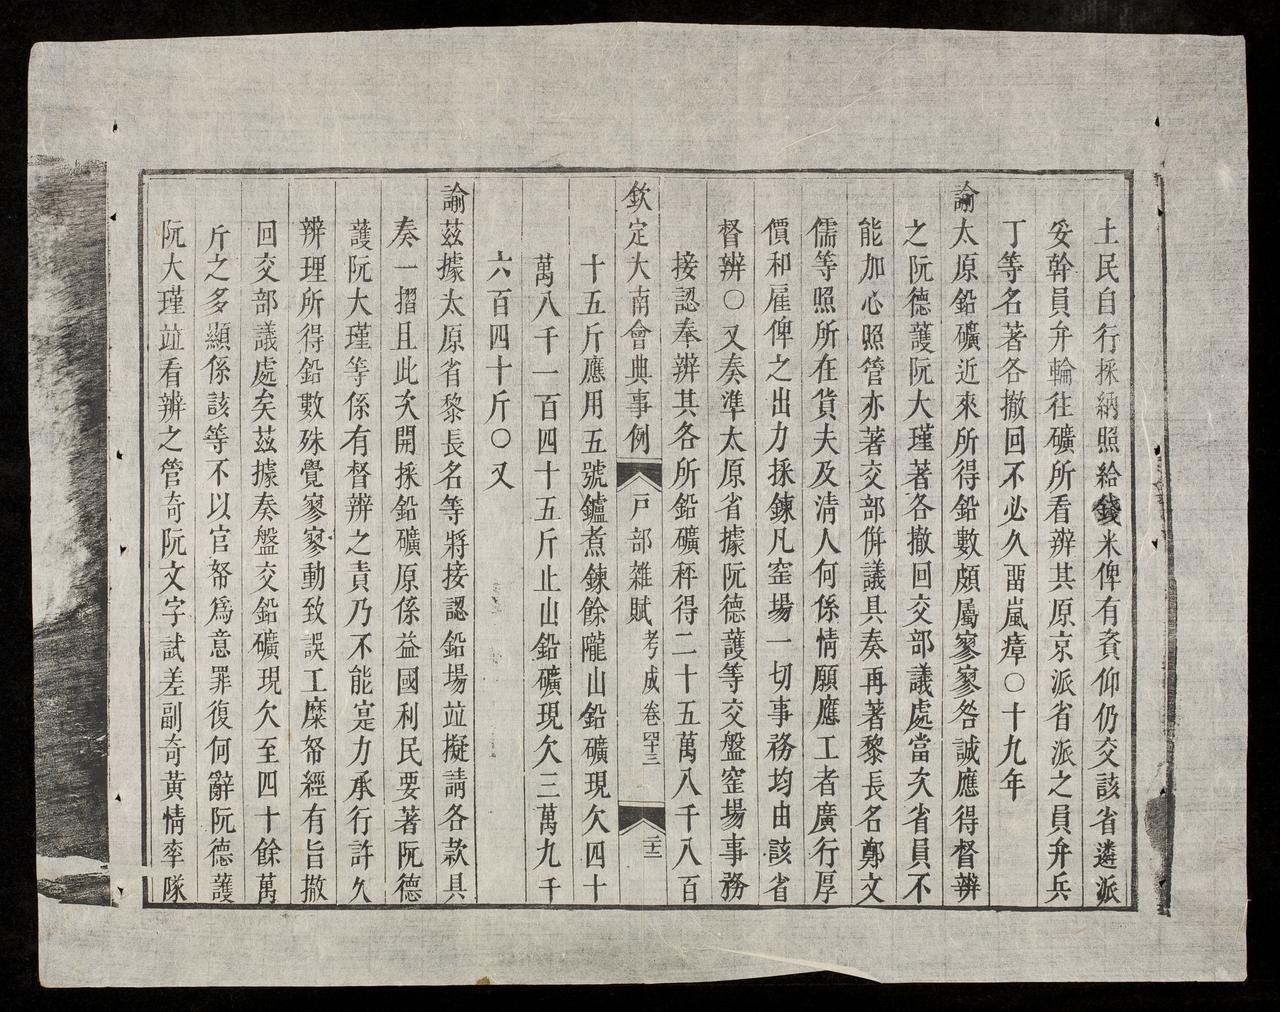 土民自行採納照給錢米俾有資仰仍交該省遴派
妥幹員弁輪往礦所看辨其原京派省派之員弁兵
丁等名著各撤回不必久畱嵐瘴〇十九年
諭太原鉛礦近來所得鉛數頗屬寥寥咎誠應得督辨
之阮德護阮大瑾著各撤回交部議處當次省員不
能加心照管亦著交部併議具奏再著黎長名鄭文
儒等照所在貨夫及清人何係情願應工者廣行厚
價和雇俾之出力採鍊凡窑場一切事務均由該省
督辨〇又奏準太原省據阮德護等交盤窑場事務
接認奉辨其各所鉛礦秤得二十五萬八千八百
欽定大南會典事例 戸部雜賦 考成 卷四十三 三十三
十五斤應用五號鑪煮鍊餘隴山鉛礦現欠四十
萬八千一百四十五斤止山鉛礦現欠三萬九千
六百四十斤〇又
諭茲據太原省黎長名等將接認鉛場竝擬請各款具
奏一摺且此次開採鉛礦原係益國利民要著阮德
護阮大瑾等係有督辨之責乃不能寔力承行許久
辨理所得鉛數殊覺寥寥動致誤工糜帑經有旨撤
回交部議處矣茲據奏盤交鉛礦現欠至四十餘萬
斤之多顯係該等不以官帑爲意罪復何辭阮德護
阮大瑾竝看辨之管奇阮文字試差副奇黃情率隊